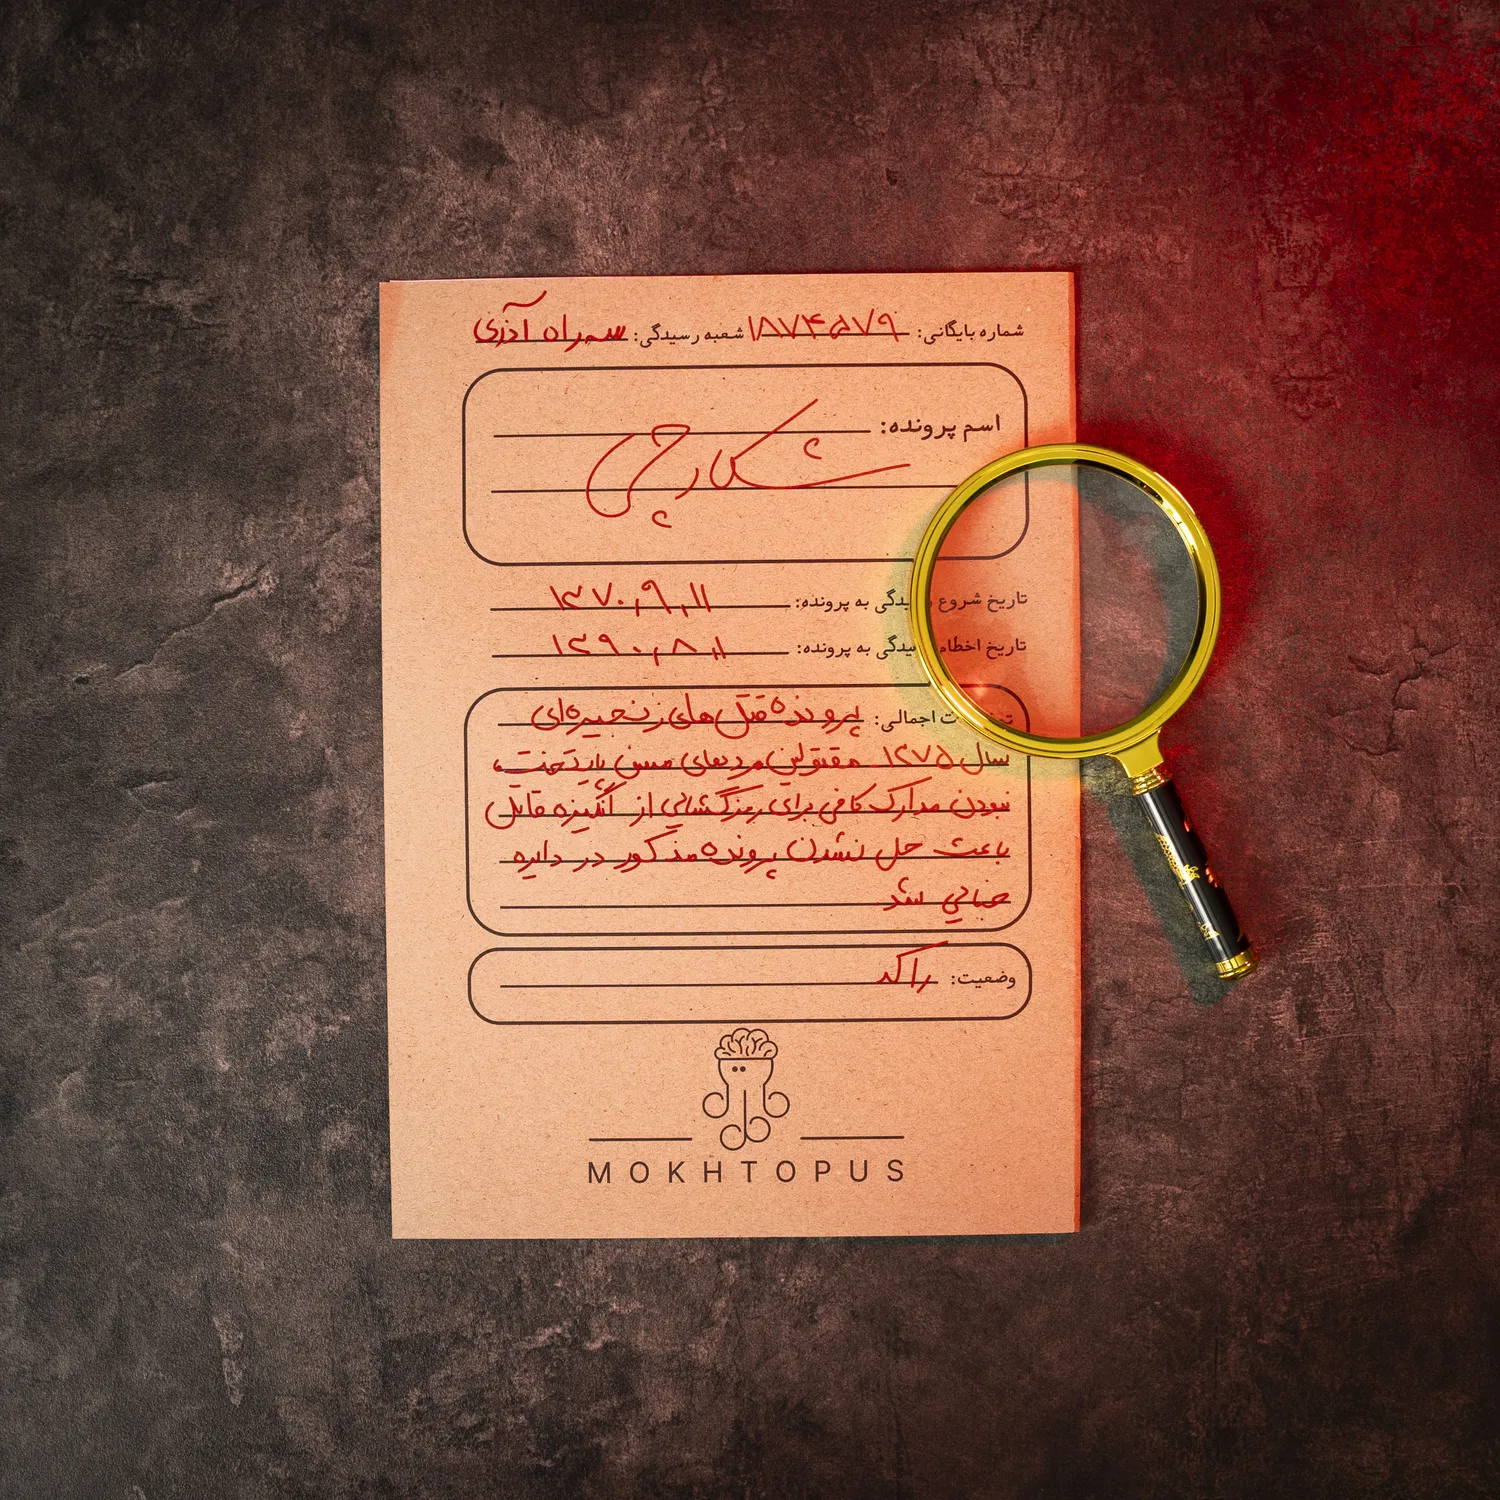 شماره بایگانی: ۱۸۷۴۵۷۹ شعبه رسیدگی: سه راه آذری
اسم پرونده:
شکارچی
تاریخ شروع رسیدگی به پرونده: ۱۳۷۰,۹,۱۱
تاریخ اخطام رسیدگی به پرونده: ۱۳۹۰,۸,۱
اجمالی: پرونده قتل های زنجیره ای
سال ۱۳۷۵. مقتولین مردهای مسن پایتخت،
نبودن مدارک کافی برای رمزگشایی از انگیزه قاتل
باعث حل نشدن پرونده مذکور در دایره
جنایی شد
وضعیت: راکد
MOKHTOPUS